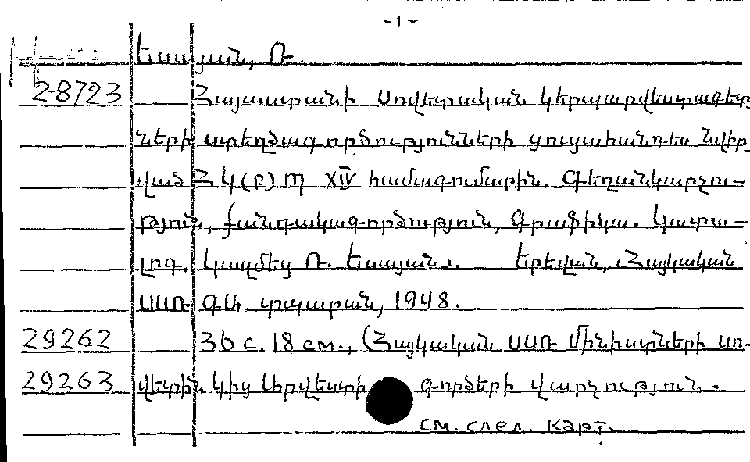 -1-
Եսայան, Ռ.
28723 Հայաստանի սովետական կերպարվեստագետ-
ների ստեղծագործությունների ցուցահանդես նվիր-
ված Հ Կ(բ)Պ XIV համագումարին. Գեղանկարչու-
թյուն, քանդակագործություն, Գրաֆիկա. Կատա-
լոգ. Կազմեց Ռ. Եսայան. Երևան, Հայկական
ՍՍՌ ԳԱ տպարան, 1948.
29262 36 с. 18 см., (Հայկական ՍՍՌ Մինիստրների սո-
29263 վետին կից Արվեստի գործերի վարչություն.
См. след. карт.